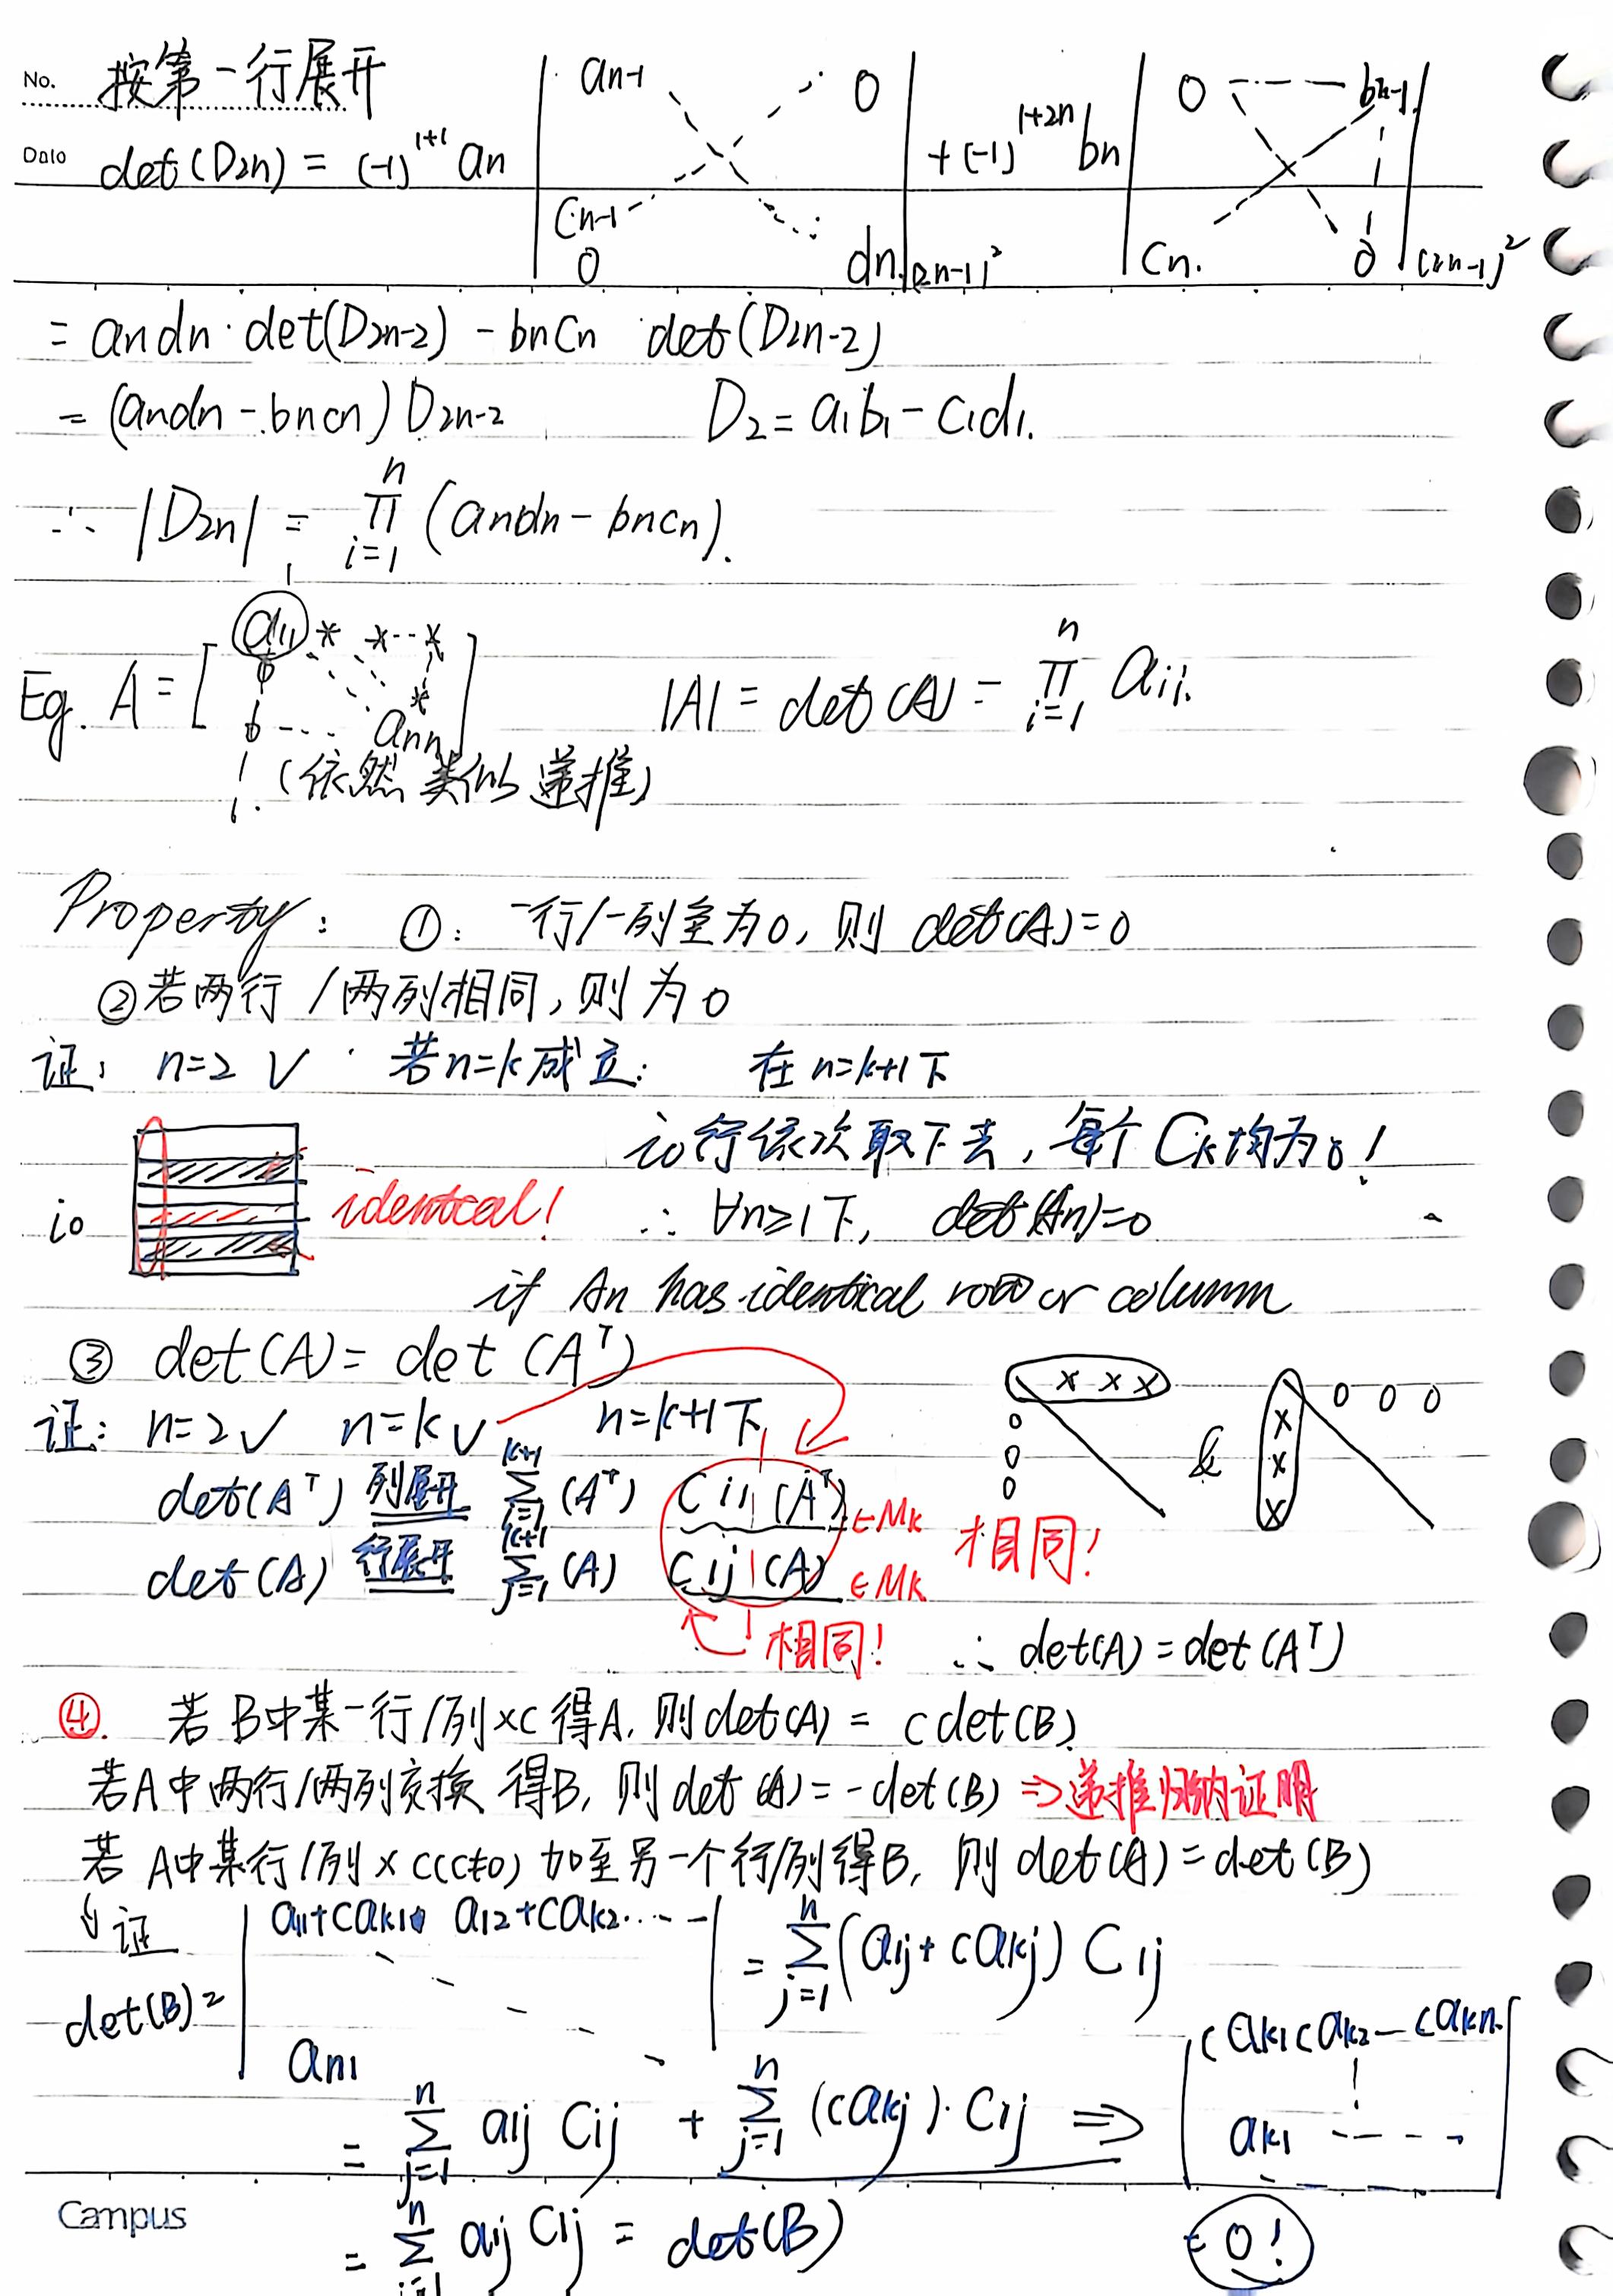 No. 按第一行展开
Date det(D2n) = (-1)^{1+1} an | an-1 0 cn-1 0 dn |(2n-1)² + (-1)^{1+2n} bn | 0 bn-1 cn 0 |(2n-1)²
= andn · det(D2n-2) - bncn det(D2n-2)
= (andn - bncn) D2n-2 D2 = a1b1 - c1d1.
∴ |D2n| = ∏_{i=1}^{n} (andn - bncn).
Eg. A = [ a11 * * ·· * 0 * 0 --- ann ] |A| = det(A) = ∏_{i=1}^{n} aii.
(依然类似递推)
Property: ①: 一行/一列全为0, 则 det(A)=0
②若两行/两列相同, 则为0
证: n=2 √ 若n=k成立: 在 n=k+1下
i0行依次取下去, 每个Ck均为0!
i0 identical! ∴ ∀n≥1下, det(An)=0
if An has identical row or column
③ det(A) = det(A^T)
证: n=2√ n=k√ n=k+1下 x x x 0 0 0 & x x x 0 0 0
det(A^T) 列展开 ∑_{i=1}^{k+1} (A^T) Ci1(A^T) ∈Mk 相同!
det(A) 行展开 ∑_{j=1}^{k+1} (A) C1j(A) ∈Mk
相同! ∴ det(A) = det(A^T)
④. 若B中某一行/列×C得A, 则det(A) = c det(B)
若A中两行/两列交换 得B, 则det(A) = -det(B) ⇒递推归纳证明
若A中某行/列×c(c≠0) 加至另一个行/列得B, 则det(A) = det(B)
↓证
det(B) = | a11+cak1 a12+cak2 ···-- an1 | = ∑_{j=1}^{n} (a1j + cakj) C1j
= ∑_{j=1}^{n} a1j C1j + ∑_{j=1}^{n} (cakj) · C1j ⇒ | cak1 cak2 — cakn ak1 ---- |
= ∑_{j=1}^{n} a1j C1j = det(B) = 0!
Campus